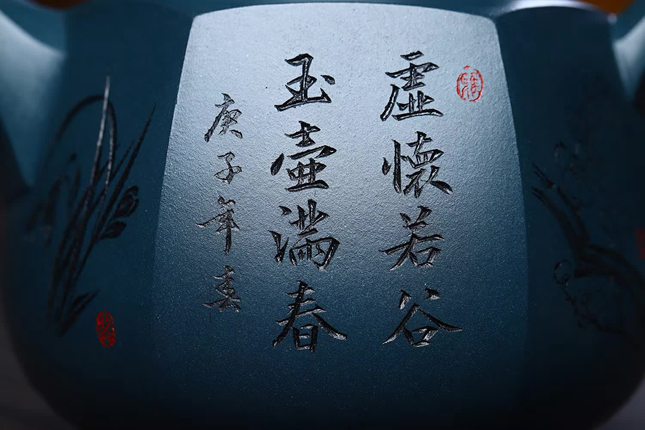 虛懷若谷
玉壺滿春
庚子年春